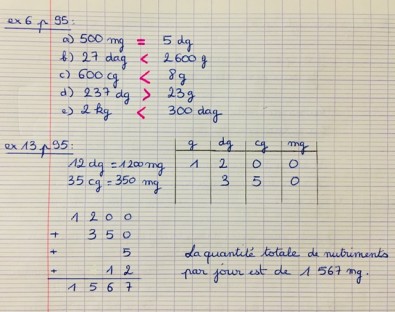 ex 6 p 95:
a) 500 mg = 5 dg
b) 27 dag < 2600 g
c) 600 cg < 8 g
d) 237 dg > 23 g
e) 2 kg < 300 dag
ex 13 p 95:
g dg cg mg
12 dg = 1200 mg 1 2 0 0
35 cg = 350 mg 3 5 0
1 2 0 0
+ 3 5 0
+ 5
+ 1 2
1 5 6 7
La quantité totale de nutriments
par jour est de 1 567 mg.